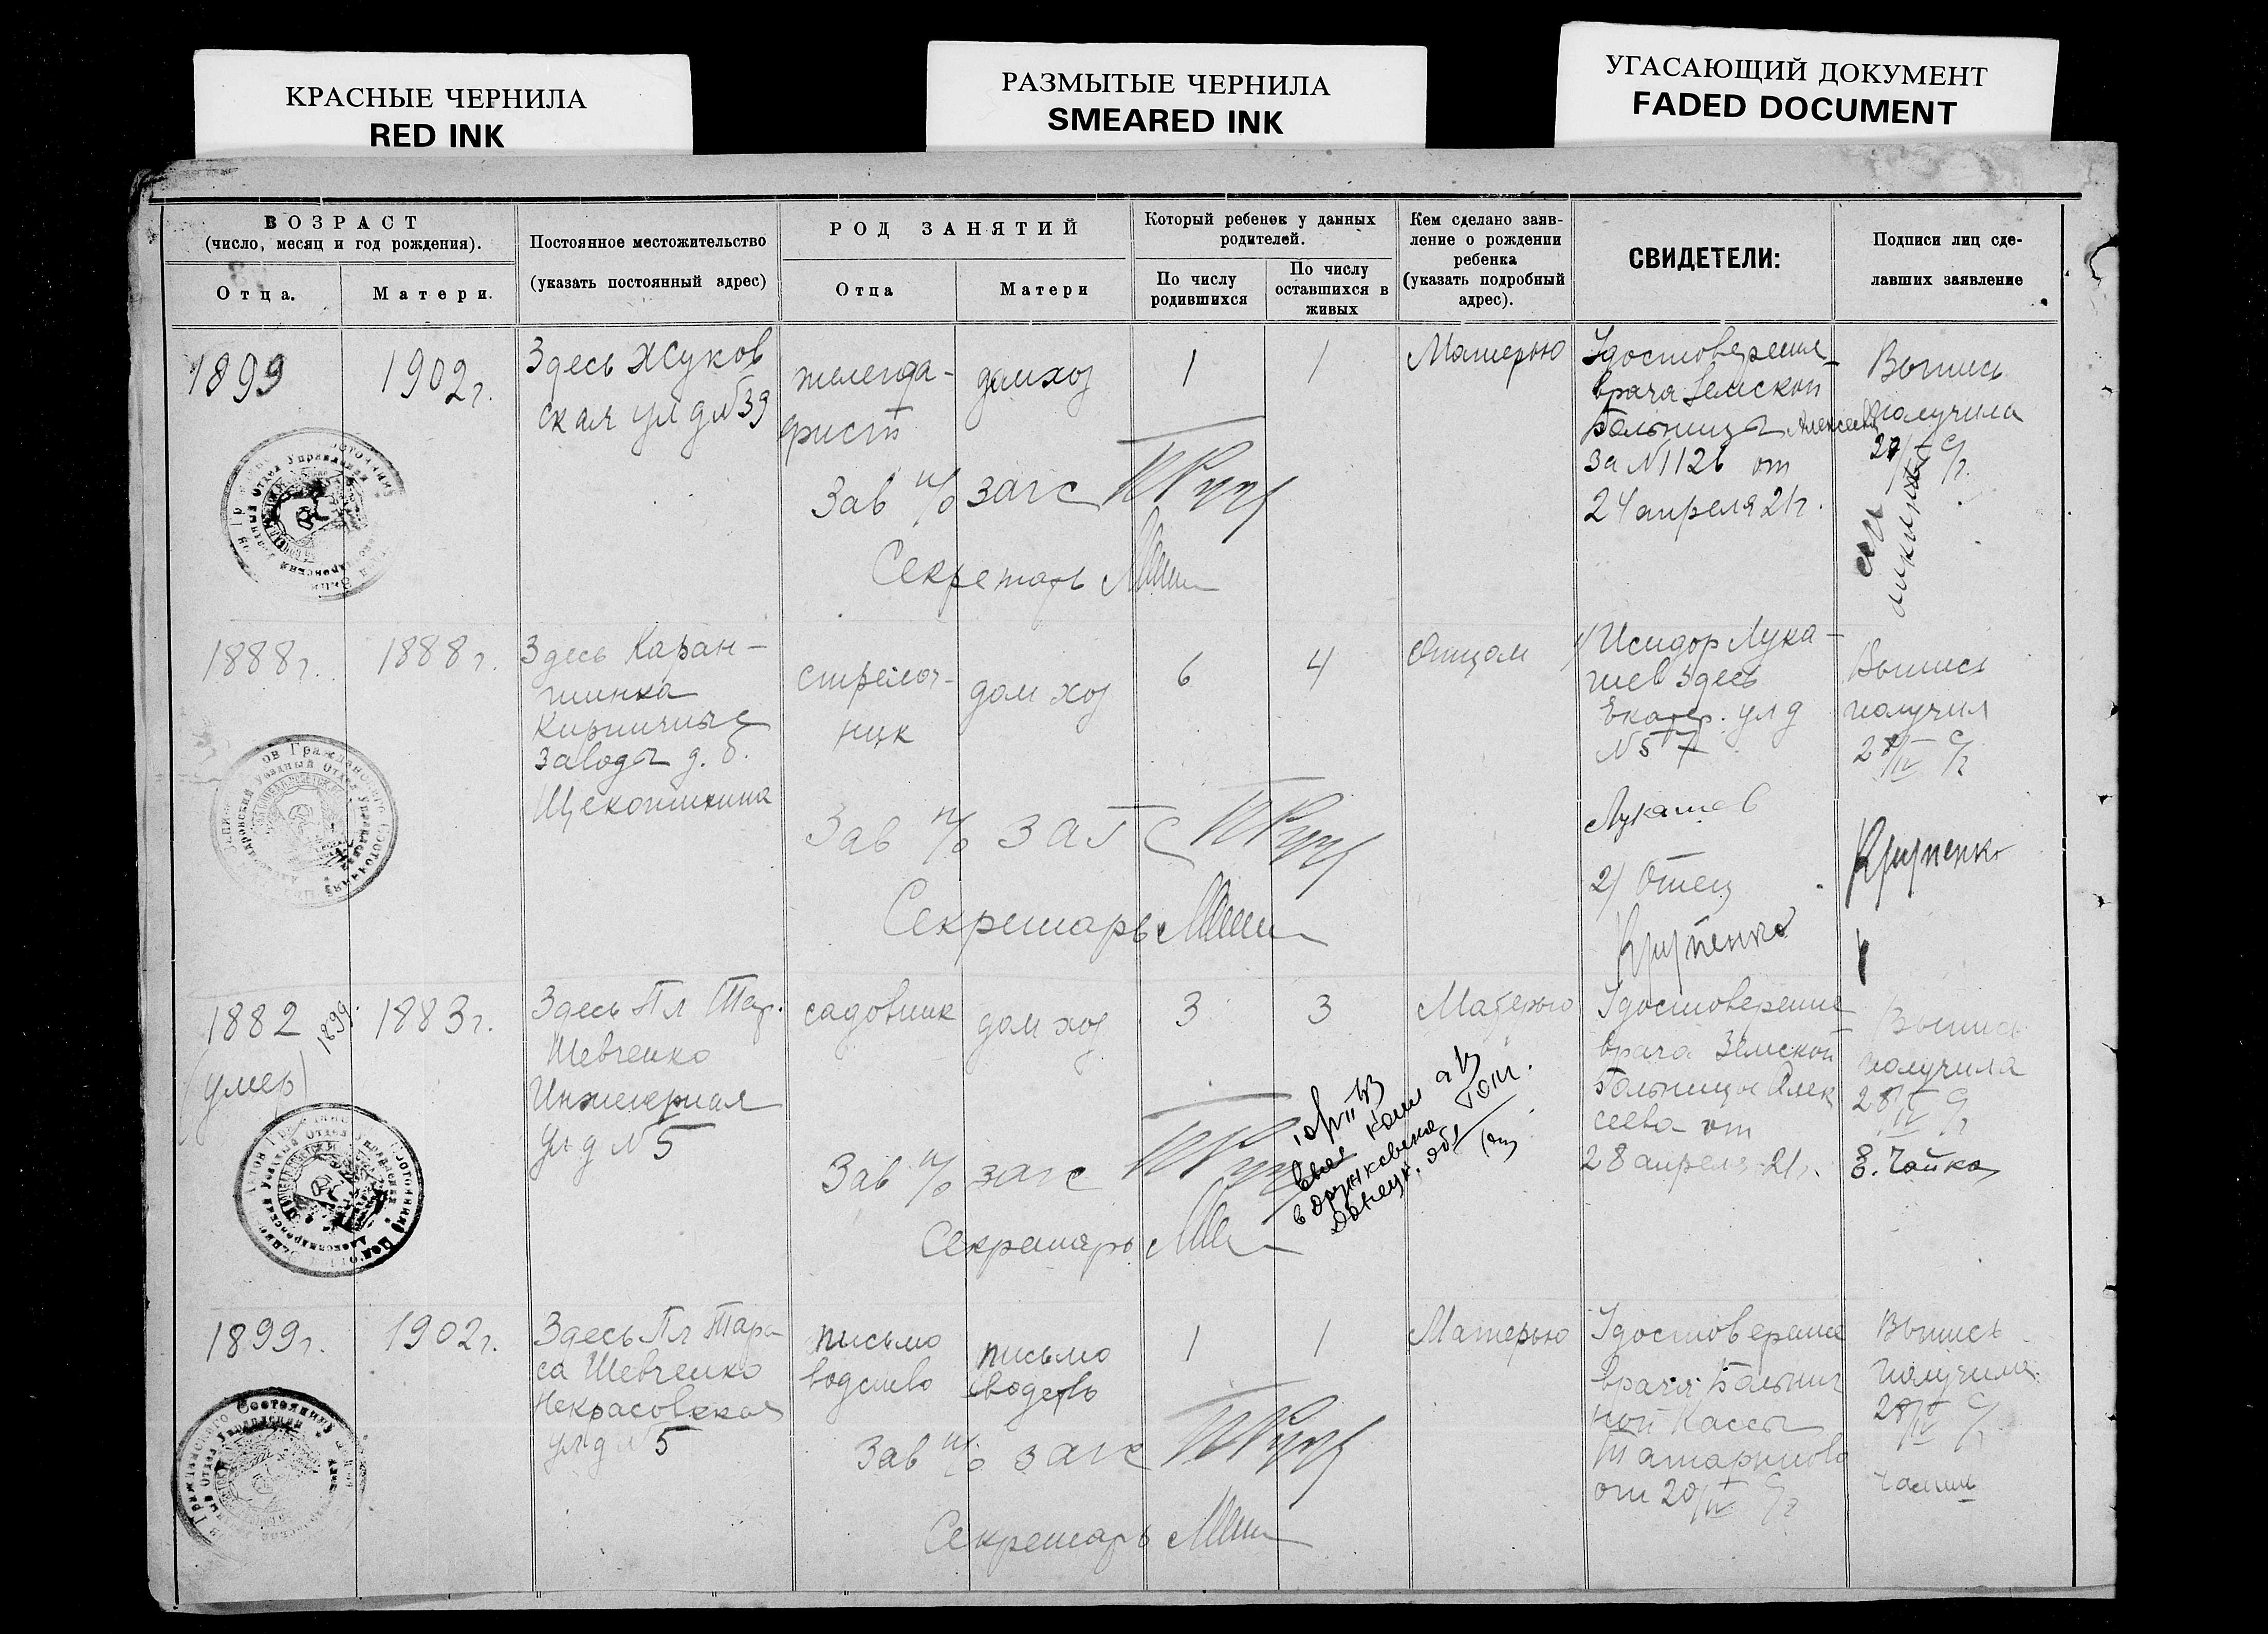 КРАСНЫЕ ЧЕРНИЛА
RED INK
РАЗМЫТЫЕ ЧЕРНИЛА
SMEARED INK
УГАСАЮЩИЙ ДОКУМЕНТ
FADED DOCUMENT
ВОЗРАСТ
(число, месяц и год рождения).
Отца.
Матери.
Постоянное местожительство
(указать постоянный адрес)
РОД ЗАНЯТИЙ
Отца
Матери
Который ребенок у данных
родителей.
По числу
родившихся
По числу
оставшихся в
живых
Кем сделано заяв-
ление о рождении
ребенка
(указать подробный
адрес).
СВИДЕТЕЛИ:
Подписи лиц сде-
лавших заявление
1899
1902г.
Здесь Жуков
ская ул д №39
телегра-
фист
домхоз
1
1
Матерью
Удостоверение
врача Земской
Больницы Алексеева
за №1126 от
24 апреля 21г.
Выпись
получила
Зав п/о загс
Секретарь
1888г.
1888г.
Здесь Каран-
тинка
Кирпичные
заводы д. б.
Щекотихина
стрелоч-
ник
дом хоз
6
4
Отцом
1/ Исидор Лука-
шев Здесь
Екатер. ул д
№57
Лукашев
2/ Отец
Крупенко
Выпись
получил
28/IV с/г
Крупенко
Зав п/о ЗАГС
Секретарь
1882
1899.
(умер)
1883г.
Здесь Пл Тар.
Шевченко
Инженерная
ул д №5
садовник
дом хоз
3
3
Матерью
Удостоверение
врача Земской
Больницы Алек
сеева от
28 апреля 21г.
Выпись
получила
28/IV с/г
Е. Чайка
Зав п/о загс
Секретарь
1899г.
1902г.
Здесь Пл Тара
са Шевченко
Некрасовская
ул д №5
письмо
водство
письмо
водств
1
1
Матерью
Удостоверение
врача Больнич
ной Кассы
Татаринова
от 20/IV с/г
Выпись
получила
28/IV с/г
Зав п/о загс
Секретарь